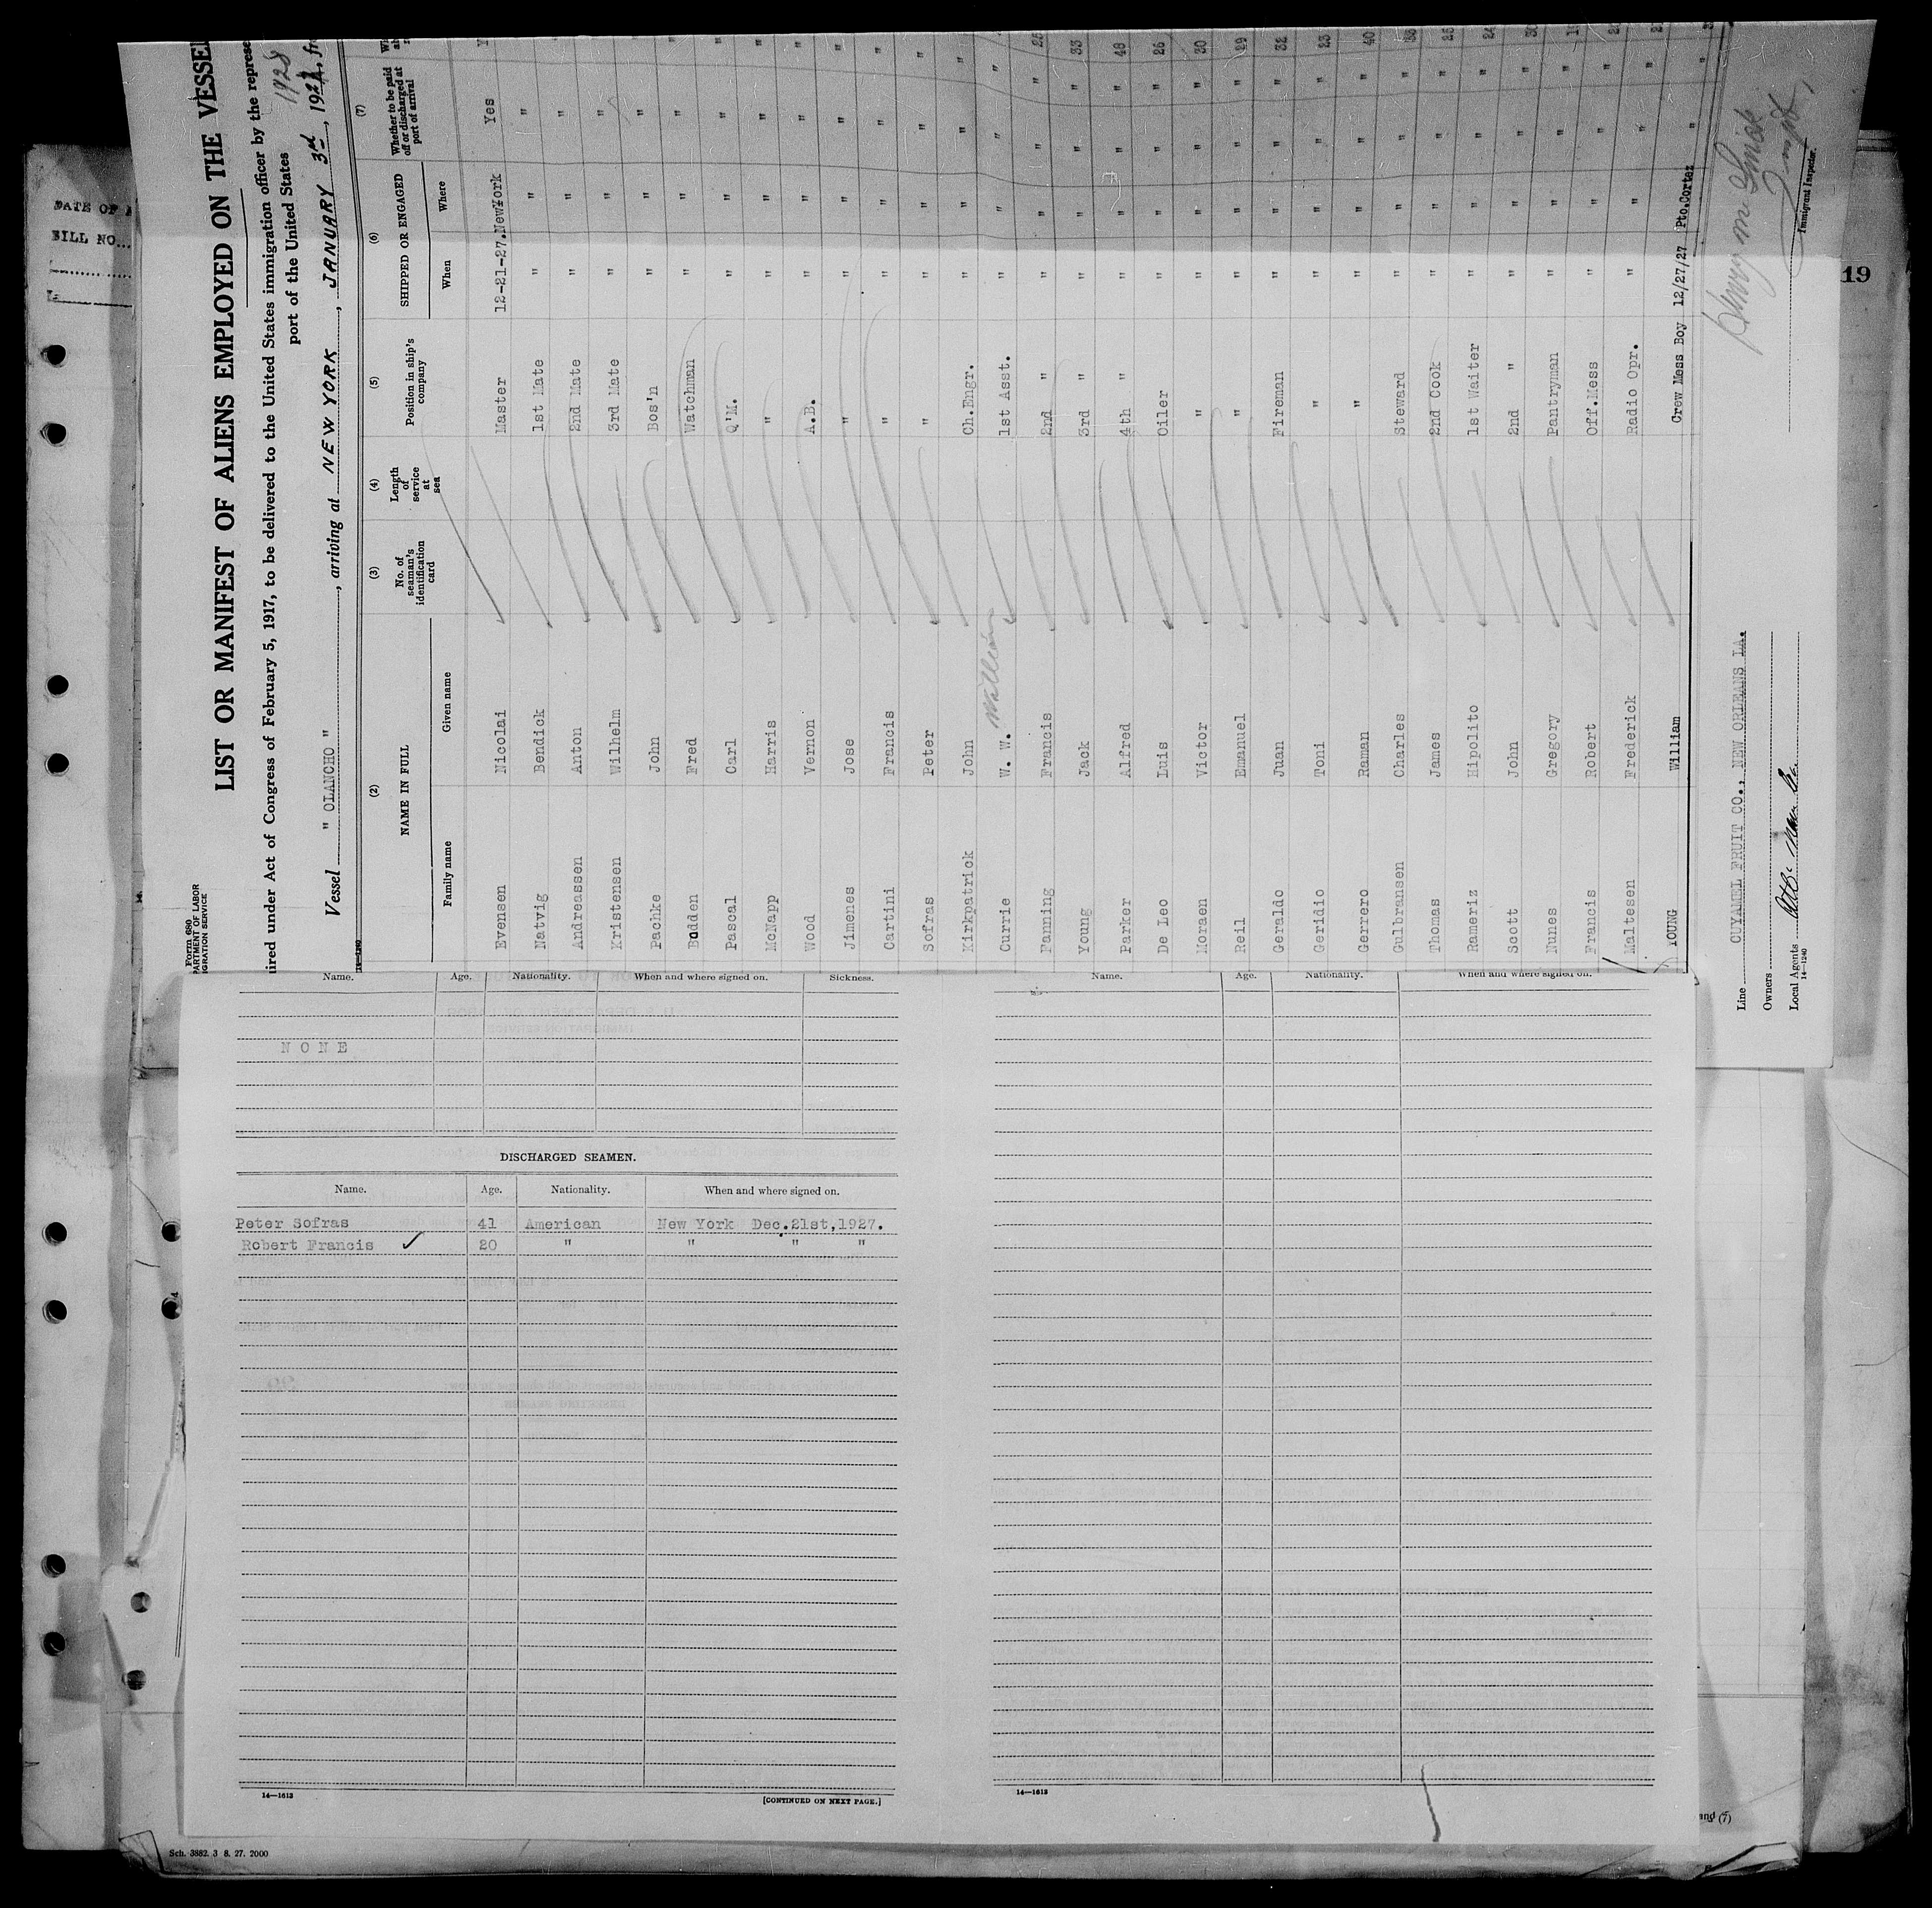 Form 680
LIST OR MANIFEST OF ALIENS EMPLOYED ON THE VESSEL
ired under Act of Congress of February 5, 1917, to be delivered to the United States immigration officer by the represe
port of the United States
1928
Vessel " OLANCHO ", arriving at NEW YORK, JANUARY 3rd, 1927, fr
14—1240
(2) (3) (4) (5) (6) (7)
NAME IN FULL No. of seaman's identification card Length of service at sea Position in ship's company SHIPPED OR ENGAGED Whether to be paid off or discharged at port of arrival
Family name Given name When Where
Evensen Nicolai Master 12-21-27. NewYork Yes
Natvig Bendick 1st Mate " " "
Andreassen Anton 2nd Mate " " "
Kristensen Wilhelm 3rd Mate " " "
Pachke John Bos'n " " "
Bodden Fred Watchman " " "
Pascal Carl Q'M. " " "
McNapp Harris " " " "
Wood Vernon A.B. " " "
Jimenes Jose " " " "
Cartini Francis " " " "
Sofras Peter " " " "
Kirkpatrick John Ch.Engr. " " "
Currie W. W. William 1st Asst. " " "
Fanning Francis 2nd " " " " " 25
Young Jack 3rd " " " " " 33
Parker Alfred 4th " " " " " 48
De Leo Luis Oiler " " " " 26
Moraen Victor " " " " " 30
Reil Emanuel " " " " " 29
Geraldo Juan Fireman " " " " 32
Geridio Toni " " " " " 23
Gerrero Raman " " " " " 40
Gulbransen Charles Steward " " " "
Thomas James 2nd Cook " " " " 25
Rameriz Hipolito 1st Waiter " " " " 24
Scott John 2nd " " " " "
Nunes Gregory Pantryman " " " "
Francis Robert Off.Mess " " " "
Maltesen Frederick Radio Opr. " " " "
YOUNG William Crew Mess Boy 12/27/27 Pto.Cortez " "
Line CUYAMEL FRUIT CO., NEW ORLEANS LA.
Owners
Local Agents
14—1240
Immigrant Inspector.
DATE OF
BILL NO...
19
Name. Age. Nationality. When and where signed on. Sickness.
NONE
DISCHARGED SEAMEN.
Name. Age. Nationality. When and where signed on.
Peter Sofras 41 American New York Dec.21st,1927.
Robert Francis ✓ 20 " " " "
14—1613 [CONTINUED ON NEXT PAGE.]
Name. Age. Nationality. When and where signed on.
14—1613
and (7)
Sch. 3882. 3 8. 27. 2000